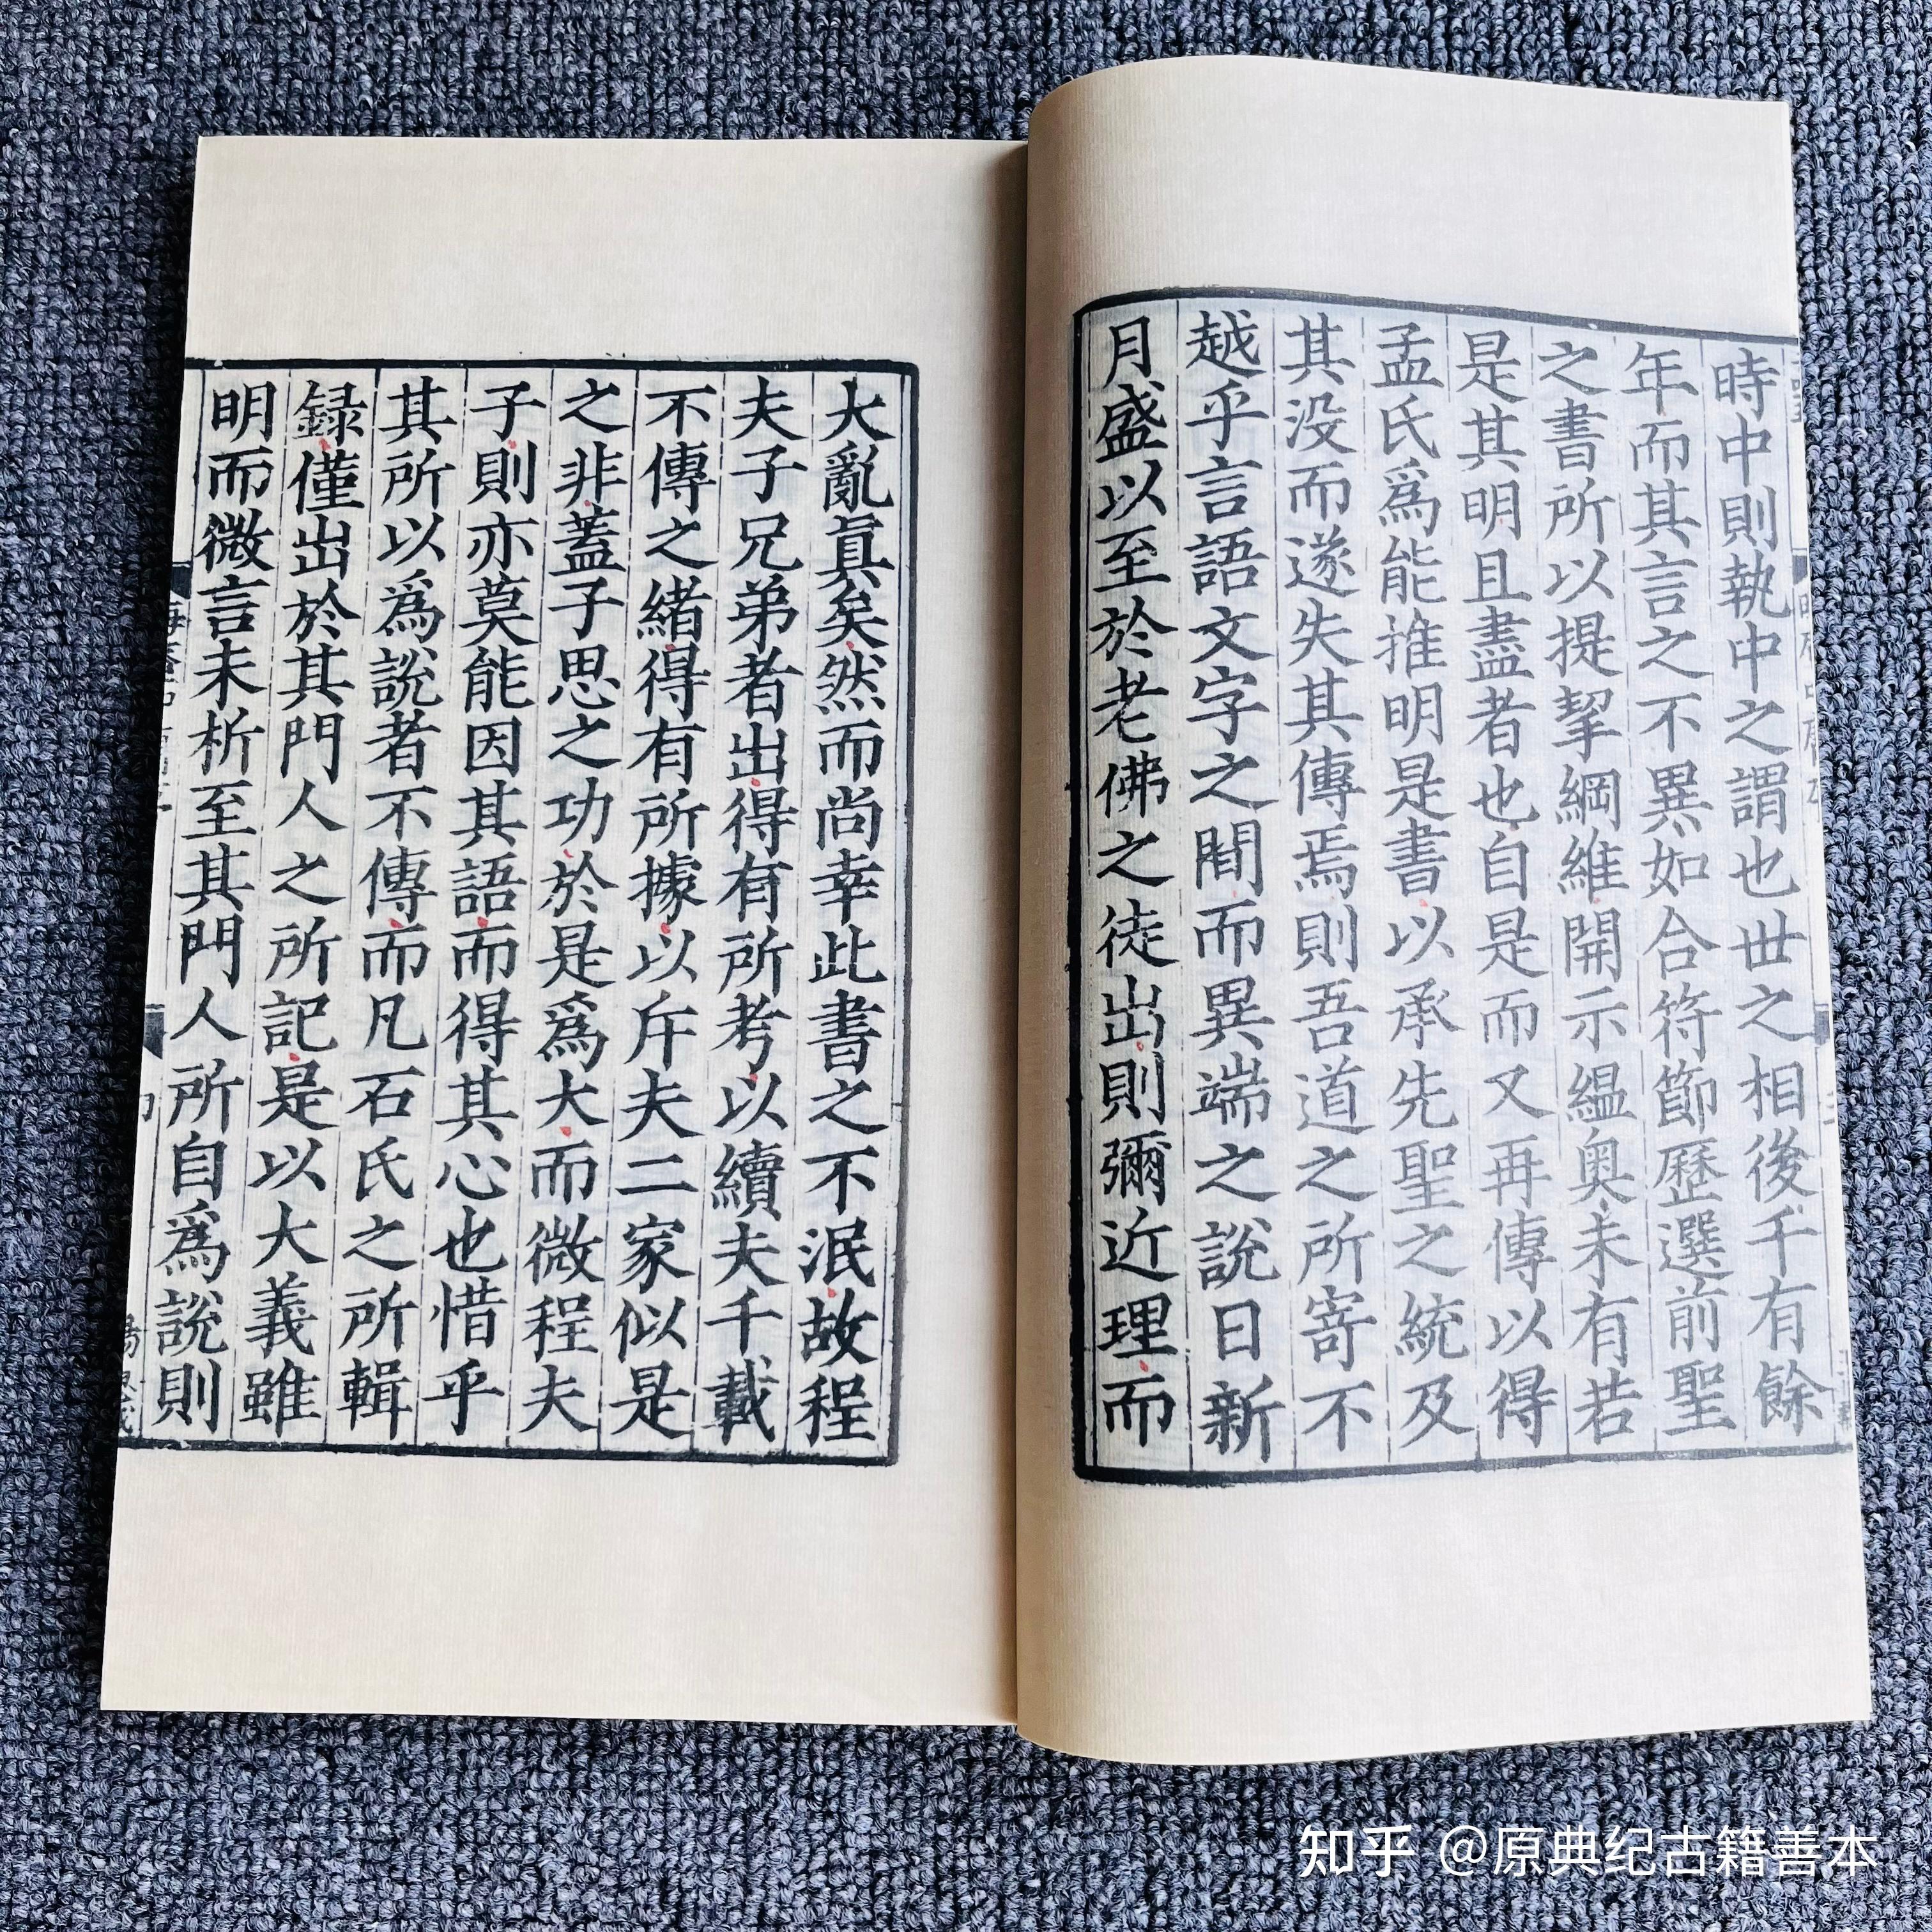 時中則執中之謂也世之相後千有餘
年而其言之不異如合符節歷選前聖
之書所以提挈綱維開示縕奧未有若
是其明且盡者也自是而又再傳以得
孟氏爲能推明是書以承先聖之統及
其没而遂失其傳焉則吾道之所寄不
越乎言語文字之閒而異端之説日新
月盛以至於老佛之徒出則彌近理而
大亂眞矣然而尚幸此書之不泯故程
夫子兄弟者出得有所考以續夫千載
不傳之緒得有所據以斥夫二家似是
之非蓋子思之功於是爲大而微程夫
子則亦莫能因其語而得其心也惜乎
其所以爲説者不傳而凡石氏之所輯
録僅出於其門人之所記是以大義雖
明而微言未析至其門人所自爲説則
知乎 @原典纪古籍善本